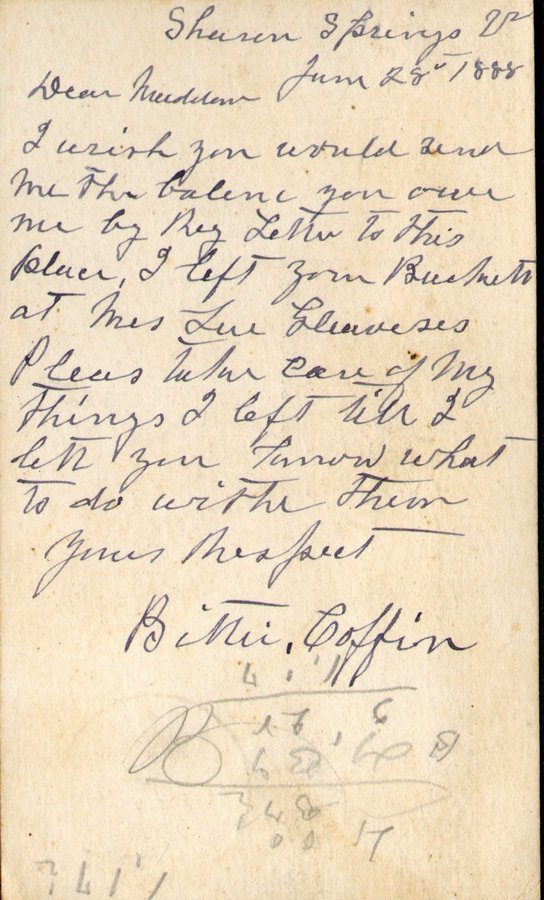 Sharon Springs
Dear Maddam Jun 28" 1888
I wish you would send
me the balenc you owe
me by Reg Letter to this
place, I left your Buckett
at Mrs Lue Gleaveses
Pleas take care of My
things I left till I
lett you know what
to do withe them
yours Respect
Bettie, Coffin